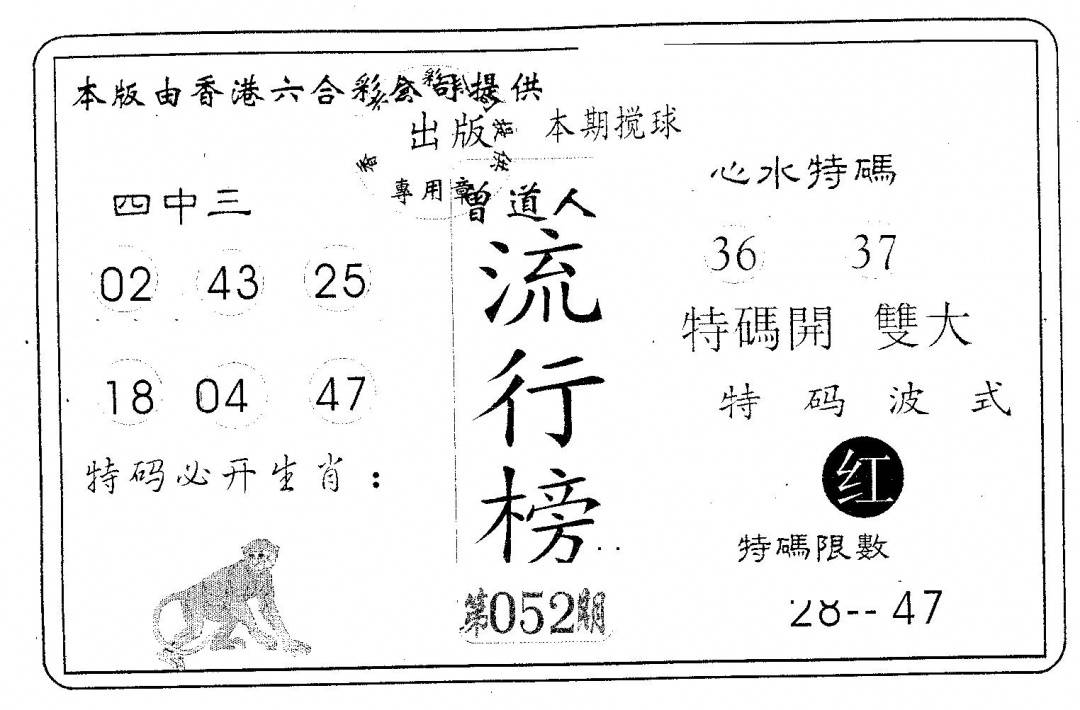 本版由香港六合彩公司提供
出版
本期搅球
專用章
四中三
02 43 25
18 04 47
特码必开生肖：
曾道人
流行榜
第052期
心水特碼
36 37
特碼開 雙大
特码波式
红
特碼限數
28--47